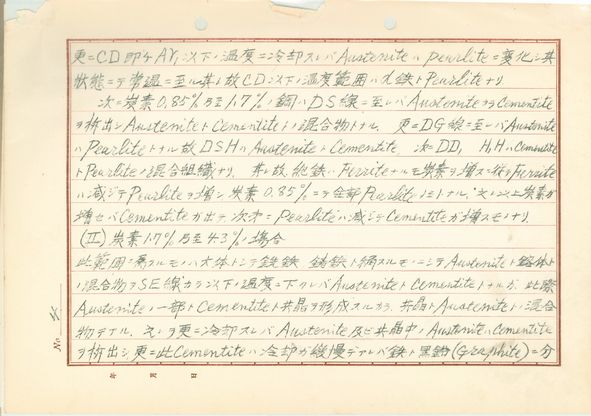 更ニCD即チAr₁以下ノ温度ニ冷却スレバAusteniteハpearliteニ変化シ其
状態ニテ常温ニ至ル 其ノ故CD以下ノ温度範囲ハ大鉄トPearliteナリ
次ニ炭素0.85%乃至1.7%ノ鋼ハDS線ニ至レバAusteniteカラCementite
ヲ析出シAusteniteトCementiteトノ混合物トナル. 更ニDG線ニ至レバAustenite
ハPearliteトナル故DSHハAusteniteトCementite, 次ニDD, H,HハCementite
トPearliteノ混合組織ナリ. 其ノ故純鉄ハFerriteナルモ炭素ヲ増スニ従ヒFerrite
ハ減ジテPearliteヲ増シ炭素0.85%ニテ全部Pearliteノミトナル. 之レ以上炭素ガ
増セバCementiteガ出テ次第ニPearliteハ減ジテCementiteガ増スモノナリ.
(II) 炭素1.7%乃至4.3%ノ場合
此範囲ニ属スルモノハ大体トシテ銑鉄 鋳鉄ト稱スルモノニシテAusteniteト鎔体ト
ノ混合物ヲSE線カラ以下ノ温度ニ下グレバAusteniteトCementiteトナルガ 此際
Austeniteノ一部トCementiteト共晶ヲ形成スルカラ 共晶トAusteniteトノ混合
物デアル. 之レヲ更ニ冷却スレバAustenite及ビ共晶中ノAusteniteハCementite
ヲ析出シ 更ニ此Cementiteハ冷却ガ緩慢デアレバ鉄ト黒鉛(Graphite)ニ分
No.
年 月 日